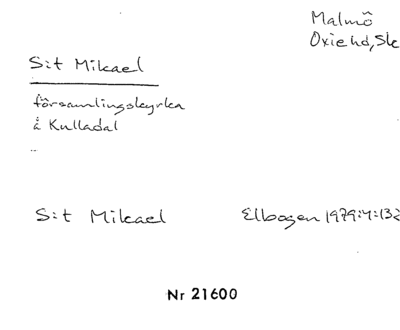 Malmö
Oxie hd, Sk
S:t Mikael
församlingskyrka
å Kulladal
..
S:t Mikael Elbogen 1979:4:132
Nr 21600